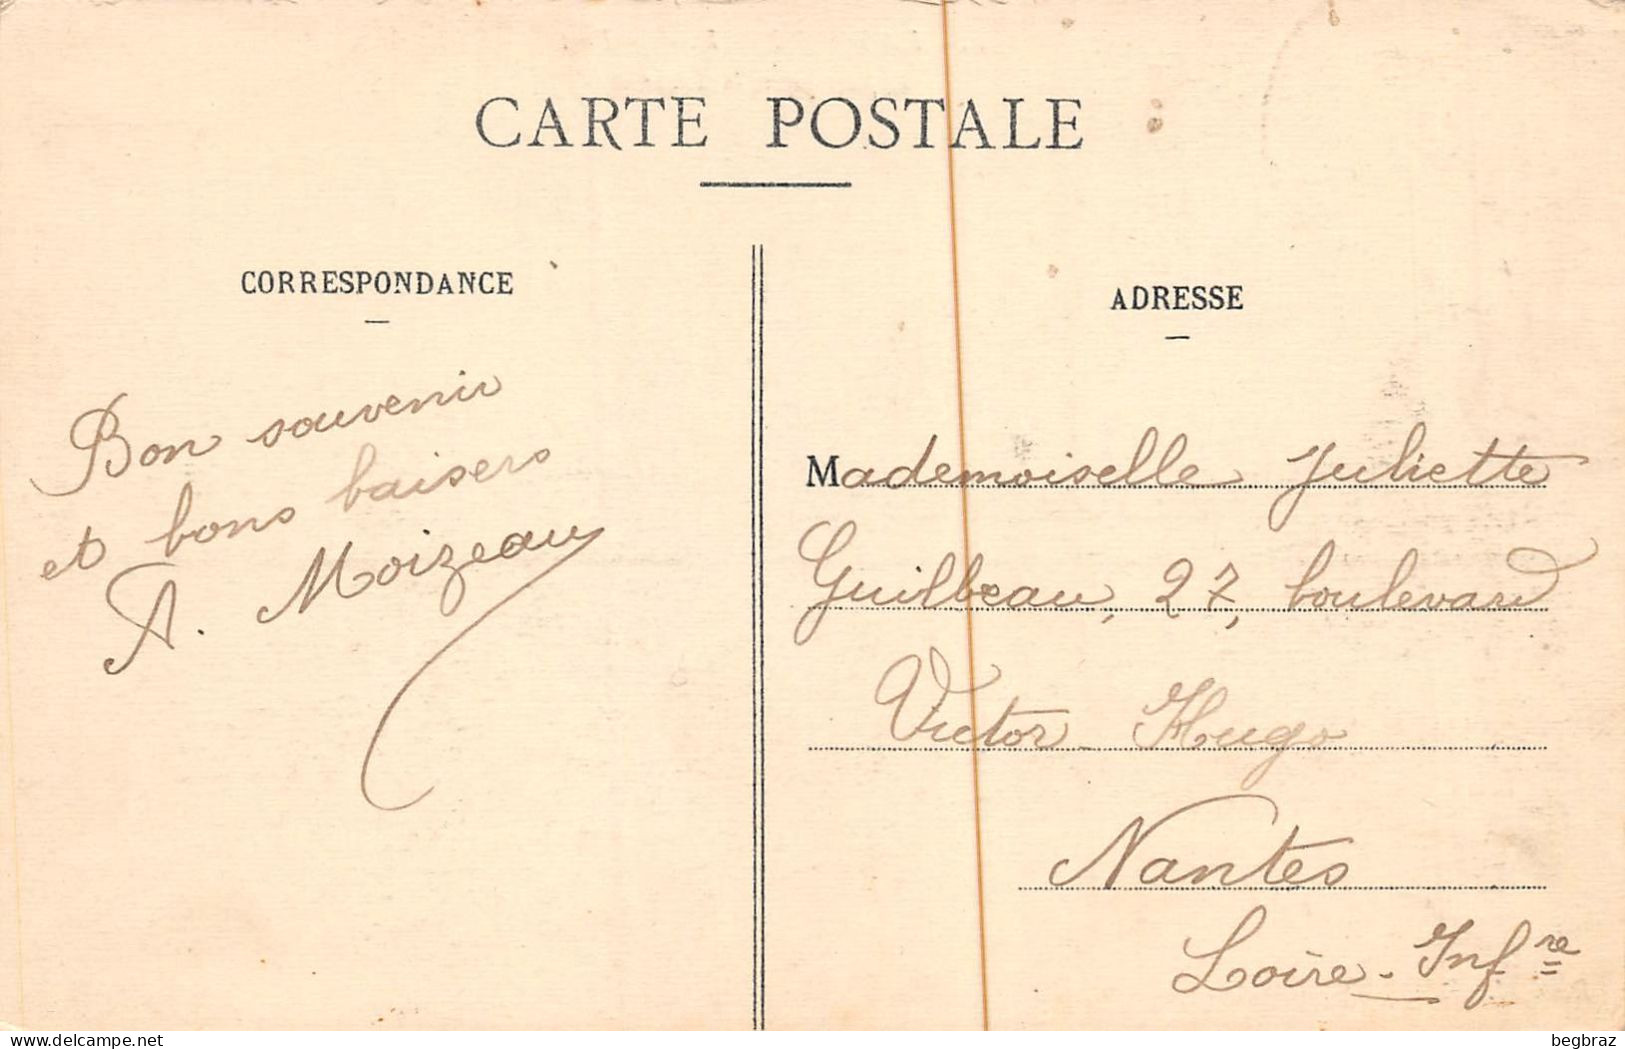 CARTE POSTALE
CORRESPONDANCE
Bon souvenir
et bons baisers
A. Moizeau
ADRESSE
Mademoiselle Juliette
Guilbeau, 27, boulevard
Victor Hugo
Nantes
Loire-Infre
delcampe.net
begbraz